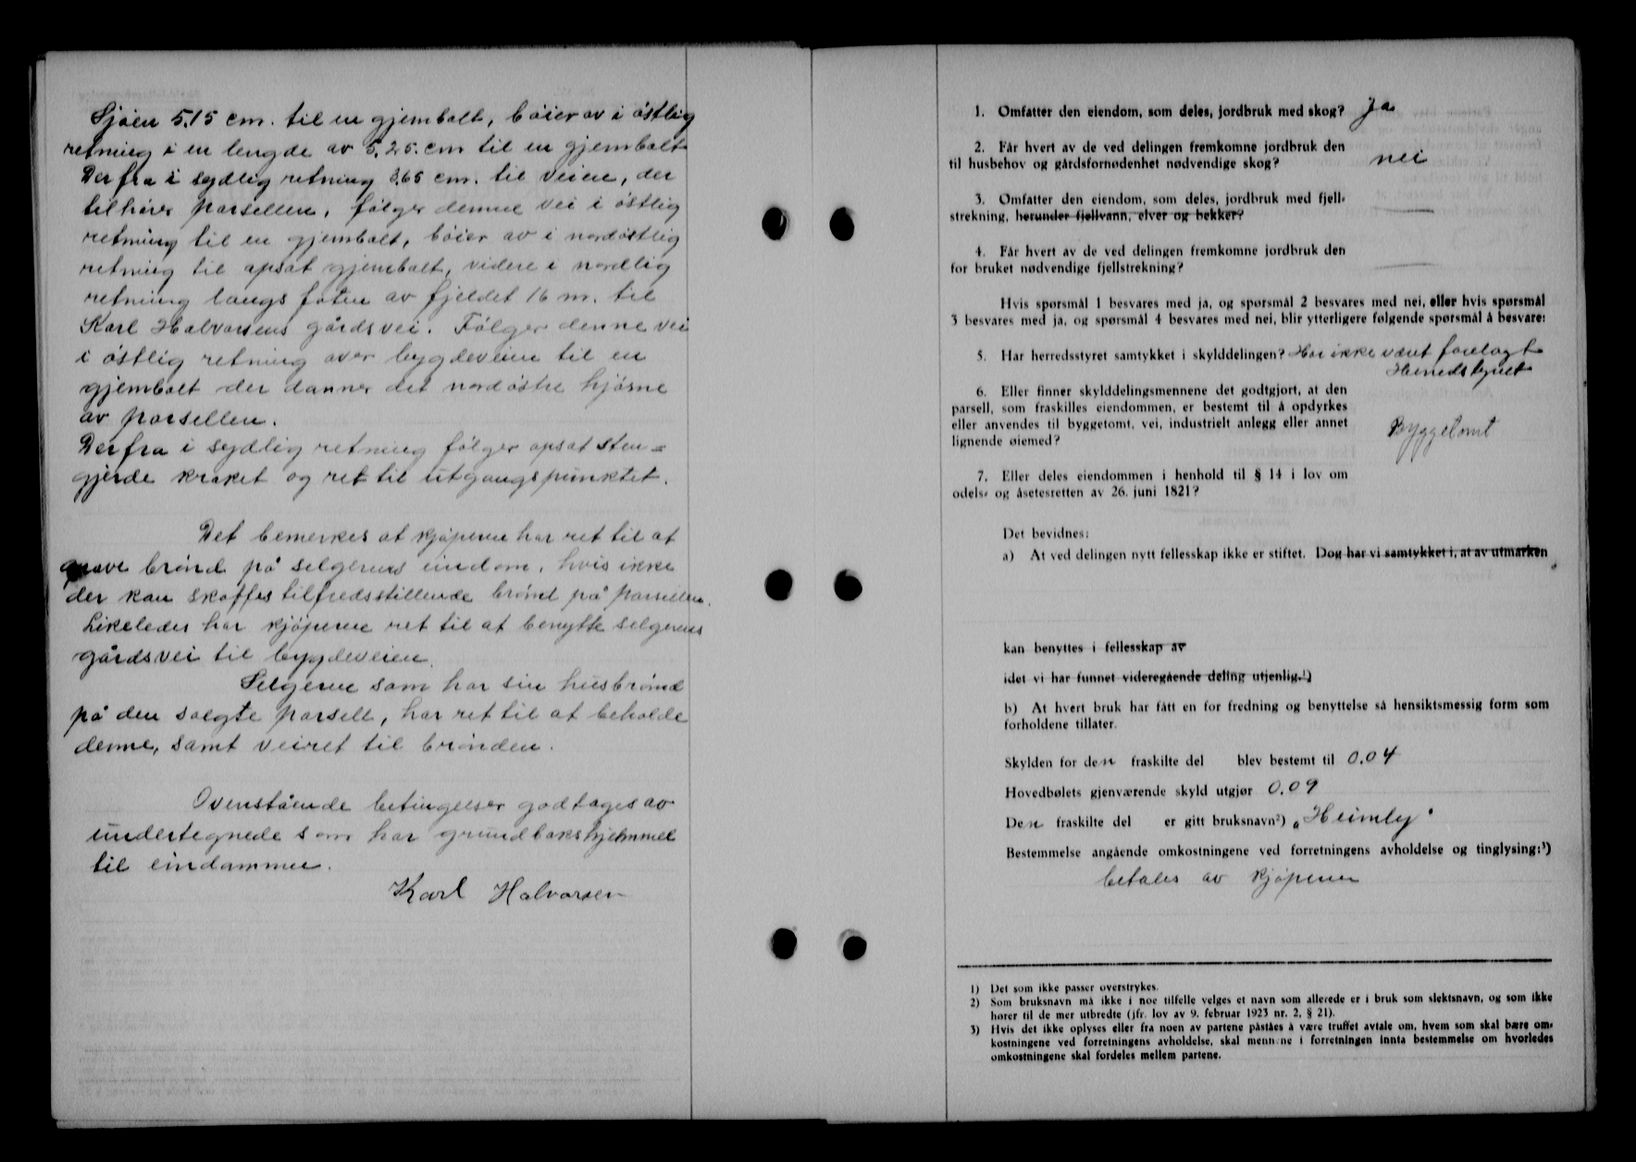 Sjøen 5,15 cm. til en gjembolt, bøier av i østlig
retning i en lengde av 5,25. cm til en gjembolt
Derfra i sydlig retning 3,65 cm. til veien, der
tilhører parsellen, følger denne vei i østlig
retning til en gjembolt, bøier av i nordøstlig
retning til opsat gjembolt, videre i nordlig
retning langs foten av fjeldet 16 m. til
Karl Halvorsens gårdsvei. Følger denne vei
i østlig retning over bygdeveien til en
gjembolt der danner det nordøstre hjørne
av parsellen.
Derfra i sydlig retning følger opsat sten-
gjerde kroket og ret til utgangspunktet.
Det bemerkes at kjøperen har ret til at
grave brønd på selgerens eindom, hvis ikke
der kan skaffes tilfredsstillende brønd på parsellen.
Likeledes har kjøperen ret til at benytte selgerens
gårdsvei til bygdeveien.
Selgeren som har sin husbrønd
på den solgte parsell, har ret til at beholde
denne, samt veiret til brønden.
Ovenstående betingelser godtages av
undertegnede som har grundbokshjemmel
til eindommen.
Karl Halvorsen
1. Omfatter den eiendom, som deles, jordbruk med skog? Ja
2. Får hvert av de ved delingen fremkomne jordbruk den
til husbehov og gårdsfornødenhet nødvendige skog? nei
3. Omfatter den eiendom, som deles, jordbruk med fjell-
strekning, herunder fjellvann, elver og bekker?
4. Får hvert av de ved delingen fremkomne jordbruk den
for bruket nødvendige fjellstrekning?
Hvis spørsmål 1 besvares med ja, og spørsmål 2 besvares med nei, eller hvis spørsmål
3 besvares med ja, og spørsmål 4 besvares med nei, blir ytterligere følgende spørsmål å besvare:
5. Har herredsstyret samtykket i skylddelingen? Har ikke været forelagt
Herredstyret
6. Eller finner skylddelingsmennene det godtgjort, at den
parsell, som fraskilles eiendommen, er bestemt til å opdyrkes
eller anvendes til byggetomt, vei, industrielt anlegg eller annet
lignende øiemed? Byggetomt
7. Eller deles eiendommen i henhold til § 14 i lov om
odels- og åsetesretten av 26. juni 1821?
Det bevidnes:
a) At ved delingen nytt fellesskap ikke er stiftet. Dog har vi samtykket i, at av utmarken
kan benyttes i fellesskap av
idet vi har funnet videregående deling utjenlig.¹)
b) At hvert bruk har fått en for fredning og benyttelse så hensiktsmessig form som
forholdene tillater.
Skylden for den fraskilte del blev bestemt til 0.04
Hovedbølets gjenværende skyld utgjør 0.09
Den fraskilte del er gitt bruksnavn²) „Heimly"
Bestemmelse angående omkostningene ved forretningens avholdelse og tinglysing:³)
betales av kjøperen
1) Det som ikke passer overstrykes.
2) Som bruksnavn må ikke i noe tilfelle velges et navn som allerede er i bruk som slektsnavn, og som ikke
hører til de mer utbredte (jfr. lov av 9. februar 1923 nr. 2, § 21).
3) Hvis det ikke oplyses eller fra noen av partene påståes å være truffet avtale om, hvem som skal bære om-
kostningene ved forretningens avholdelse, skal mennene i forretningen innta bestemmelse om hvorledes
omkostningene skal fordeles mellem partene.